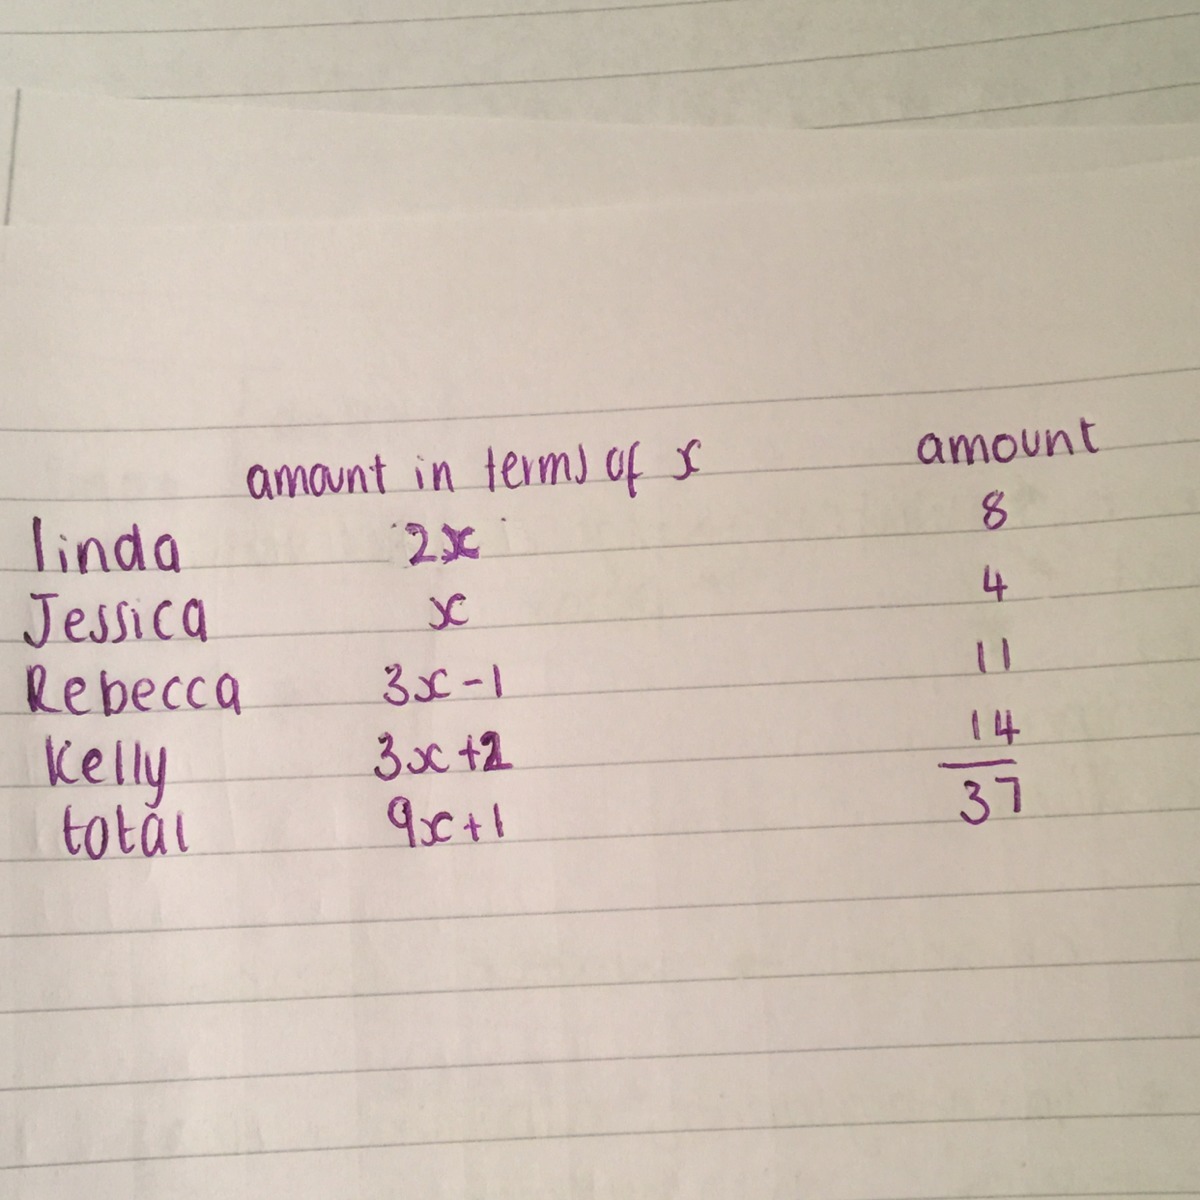 amount in terms of x amount
linda 2x 8
Jessica x 4
Rebecca 3x-1 11
Kelly 3x+2 14
total 9x+1 37